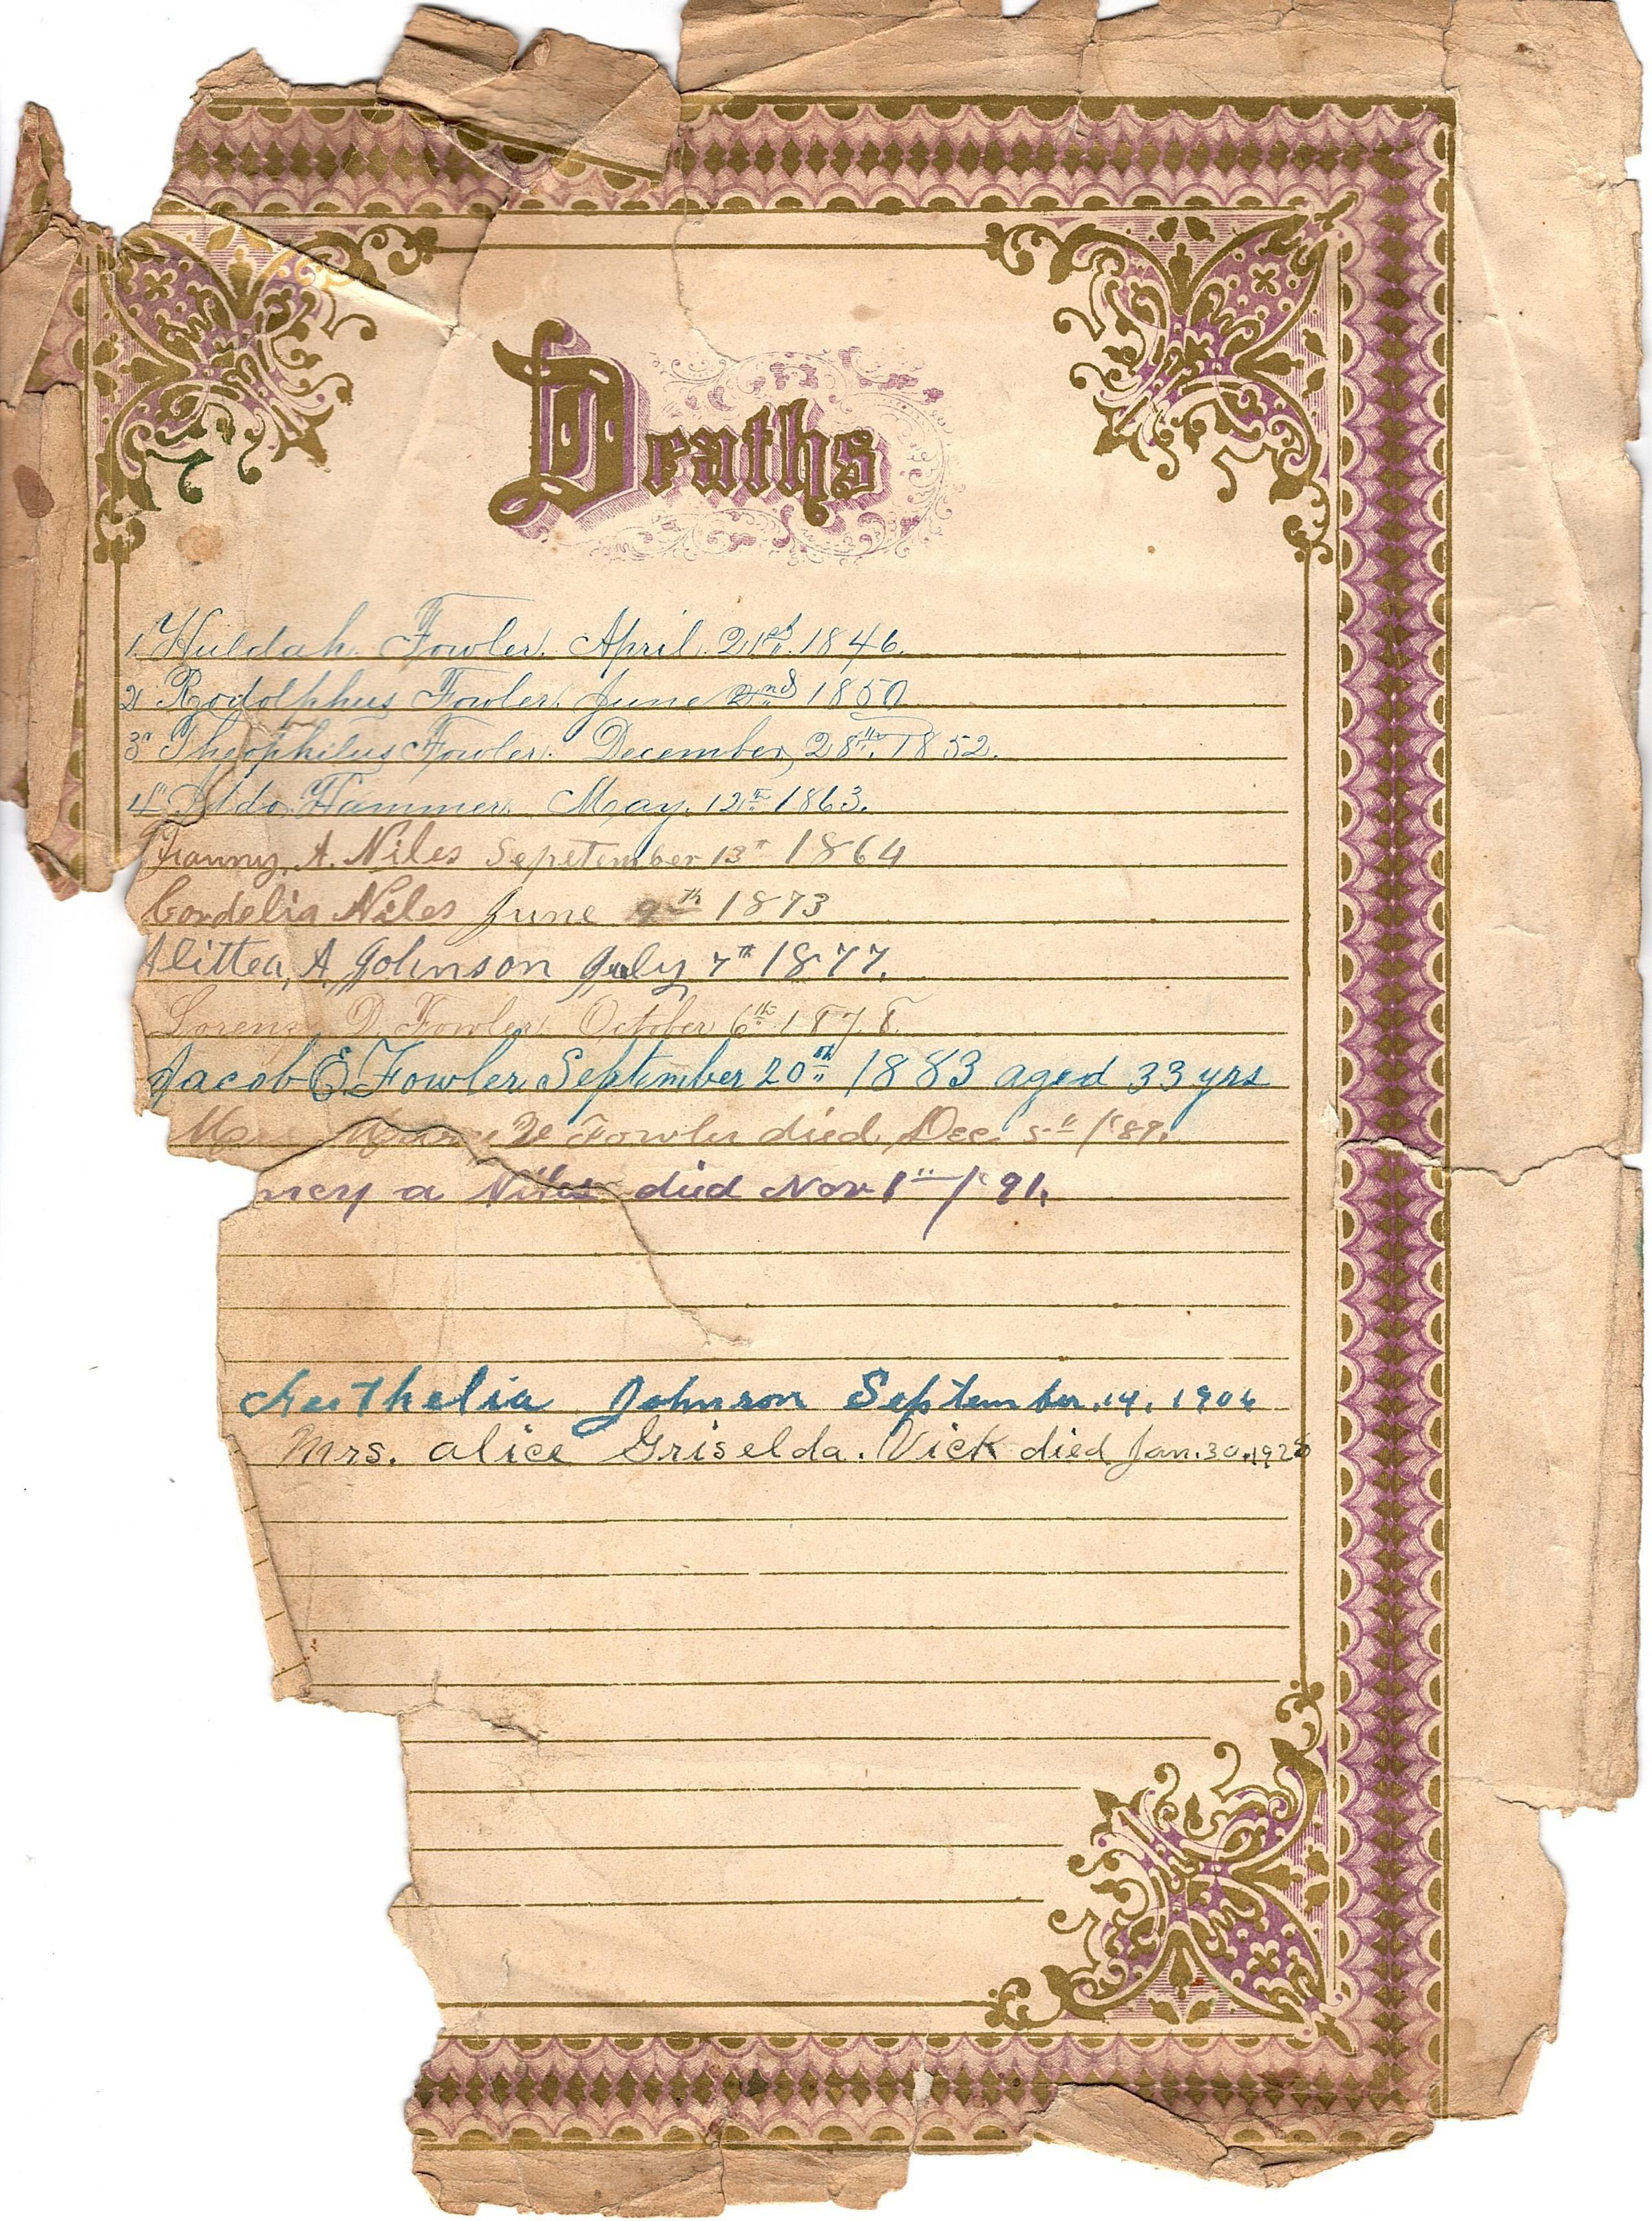 Deaths
1. Huldah Fowler. April. 21st. 1846.
2 Rodolphus Fowler. June 2nd 1850
3" Theophilus Fowler. December, 28th. 1852.
4" Hammer. May. 12th 1863.
Franny. A. Niles Sepetember 13th 1864
Cordelia Niles June 9th 1873
Alittea, A Johnson July 7th 1877.
Lorenz D. Fowler October 6th 1878.
Jacob E. Fowler September 20th 1883 aged 33 yrs
Fowler died Dec. 5th /'89.
ncy a Niles died Nov 1st /'91.
Johnson September. 14. 1906
Mrs. alice Griselda. Vick died Jan. 30. 1928